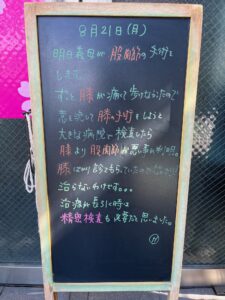 8月21日(月)
明日義母が股関節の手術を
します。
ずっと膝が痛くて歩けなかったので
意を決して膝の手術をしようと
大きな病院で検査したら
膝より股関節が悪い事が判明。
膝ばかり診てもらっていたので
治らないわけです。。。
治療が長引く時は
精密検査も必要だと思いました。